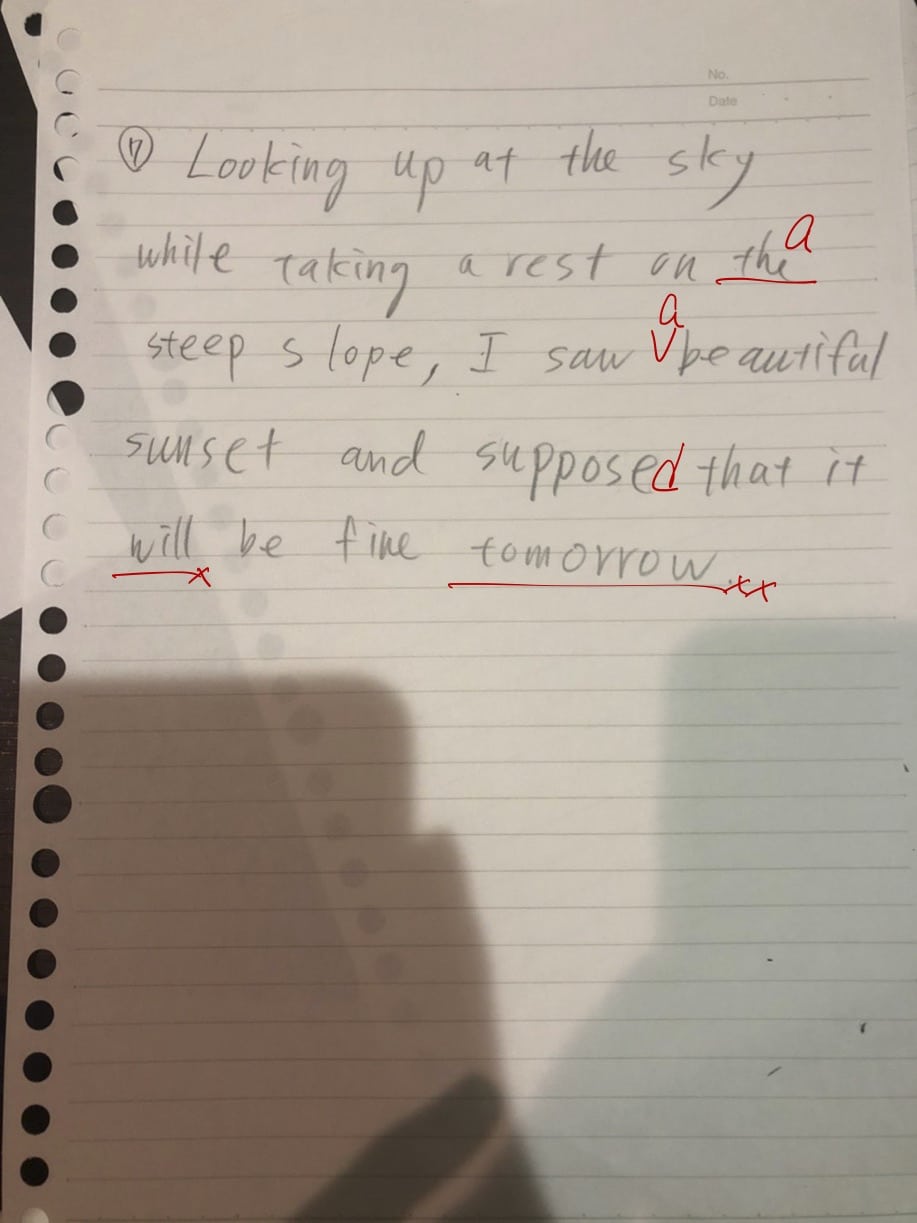 No.
Date
⑰ Looking up at the sky
while taking a rest on the a
a
steep slope, I saw beautiful
sunset and supposed that it
will be fine tomorrow.